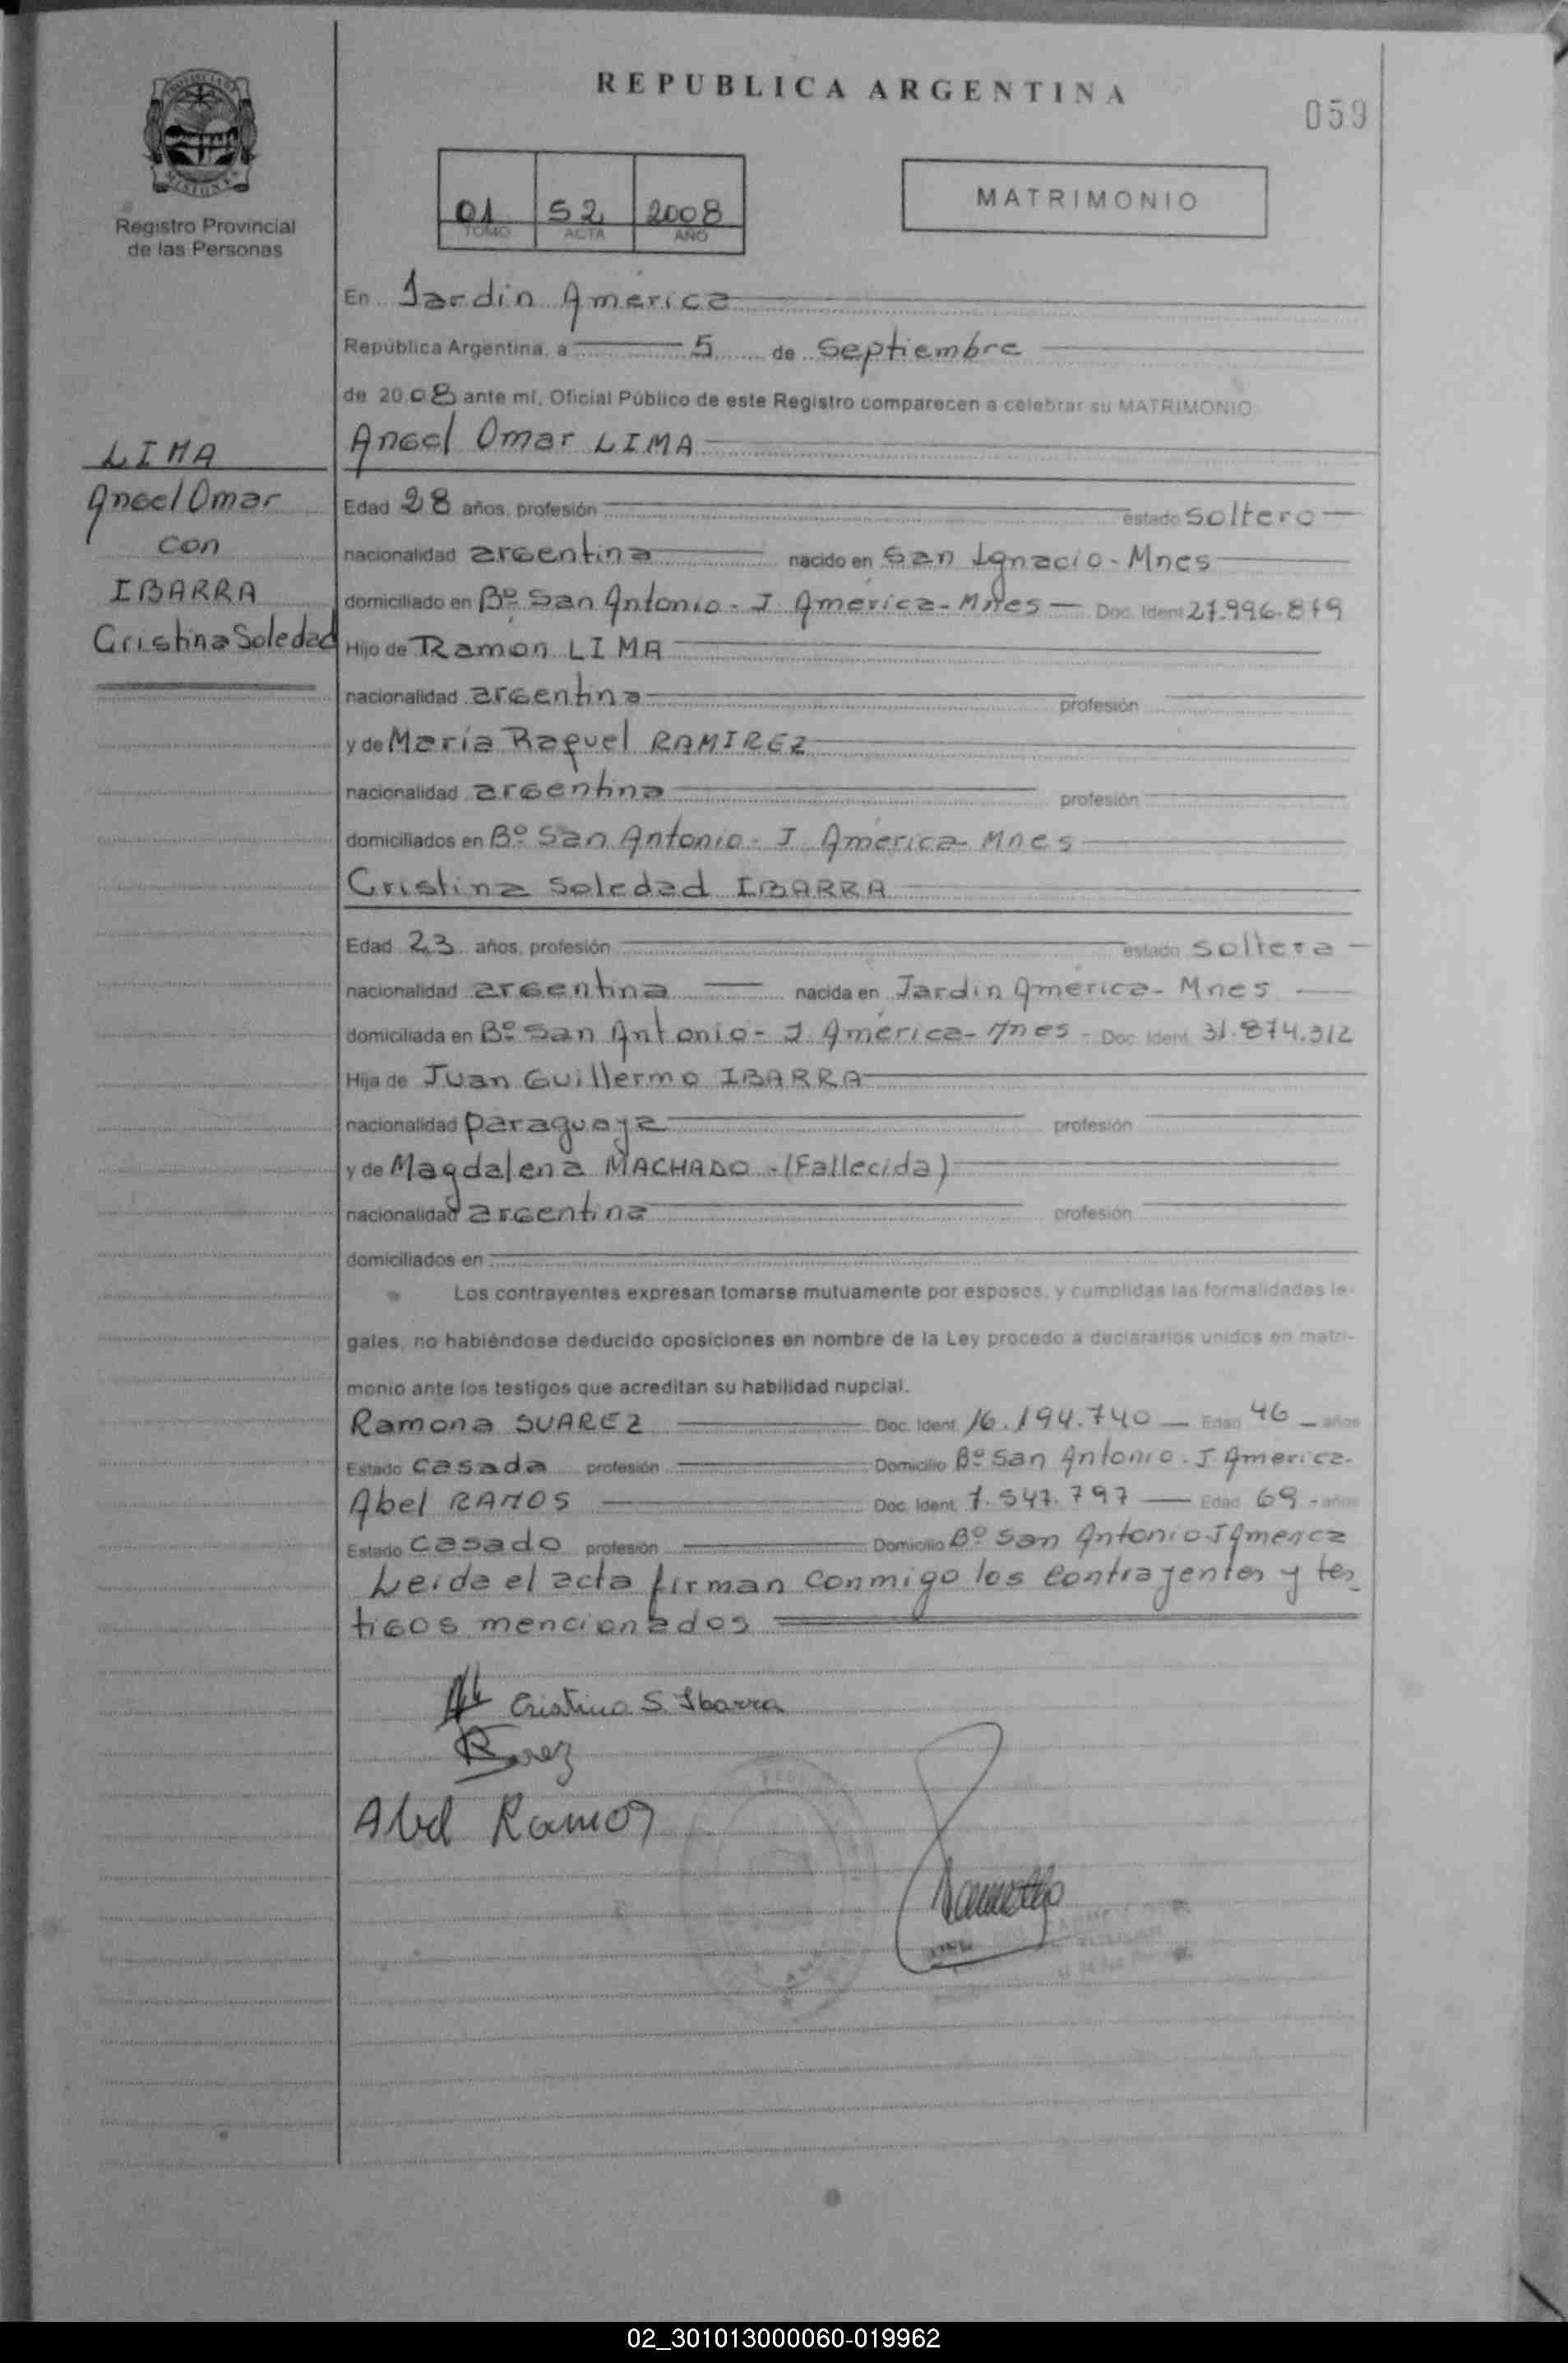 REPUBLICA ARGENTINA
059
PROVINCIA DE
MISIONES
Registro Provincial
de las Personas
01 52 2008
TOMO ACTA AÑO
MATRIMONIO
En Jardin América
República Argentina, a 5 de Septiembre
de 2008 ante mí, Oficial Público de este Registro comparecen a celebrar su MATRIMONIO
Angel Omar LIMA
LIMA
Angel Omar
con
IBARRA
Cristina Soledad
Edad 28 años, profesión estado soltero
nacionalidad argentina nacido en San Ignacio - Mnes
domiciliado en Bº San Antonio - J. América - Mnes Doc. Ident 27.996.879
Hijo de Ramón LIMA
nacionalidad argentina profesión
y de María Raquel RAMIREZ
nacionalidad argentina profesión
domiciliados en Bº San Antonio - J. América - Mnes
Cristina Soledad IBARRA
Edad 23 años, profesión estado soltera
nacionalidad argentina nacida en Jardin América - Mnes
domiciliada en Bº San Antonio - J. América - Mnes - Doc. Ident. 31.874.312
Hija de Juan Guillermo IBARRA
nacionalidad paraguaya profesión
y de Magdalena MACHADO - (Fallecida)
nacionalidad argentina profesión
domiciliados en
Los contrayentes expresan tomarse mutuamente por esposos, y cumplidas las formalidades le-
gales, no habiéndose deducido oposiciones en nombre de la Ley procedo a declararlos unidos en matri-
monio ante los testigos que acreditan su habilidad nupcial.
Ramona SUAREZ Doc. Ident. 16.194.740 Edad 46 años
Estado casada profesión Domicilio Bº San Antonio - J. America.
Abel RAMOS Doc. Ident. 7.547.797 Edad 69 - años
Estado casado profesión Domicilio Bº San Antonio J América
Leida el acta firman conmigo los contrayentes y tes
tigos mencionados
Cristina S. Ibarra
Abel Ramos
02_301013000060-019962